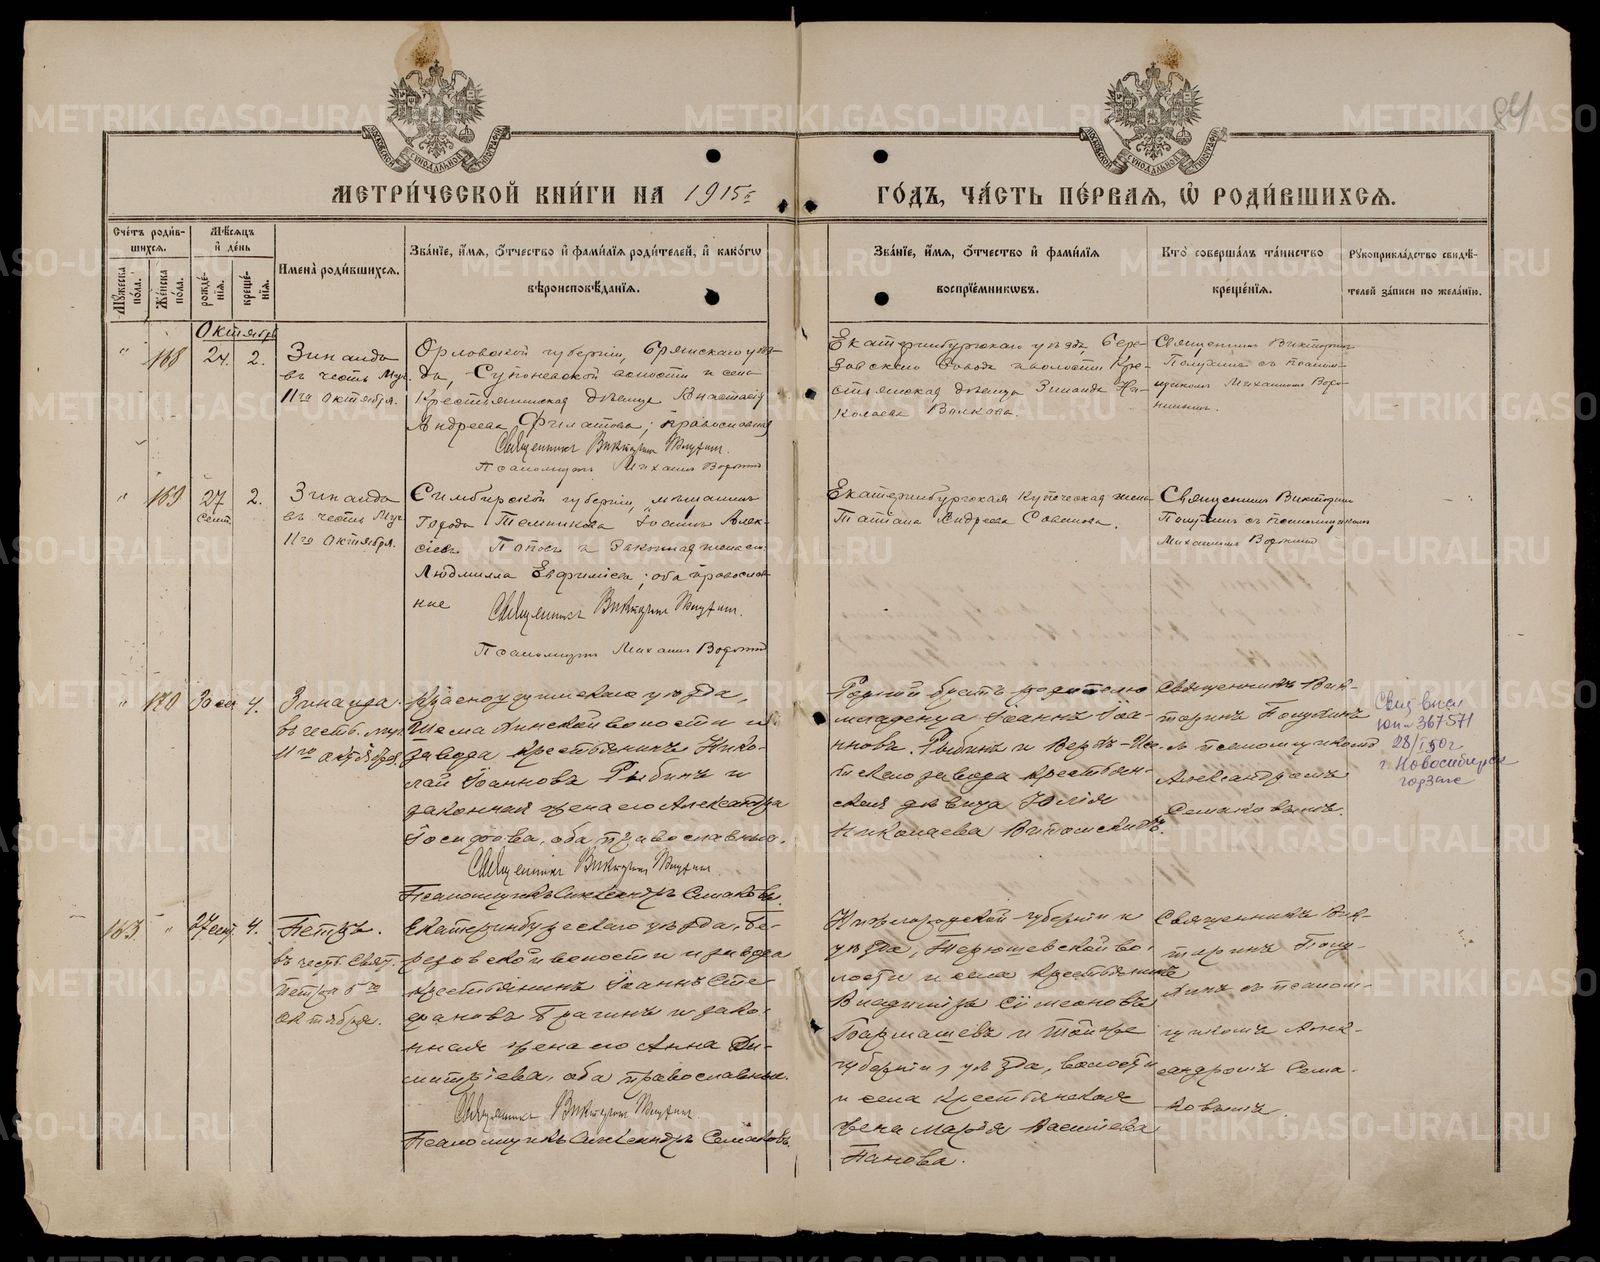 84
МЕТРИ́ЧЕСКОЙ КНИ́ГИ НА 1915 г.
ГО́ДЪ, ЧА́СТЬ ПЕ́РВАЯ, Ѡ РОДИ́ВШИХСЯ.
Сче́тъ роди́вшихся.
Мѹ́жеска по́ла.
Же́нска по́ла.
Мѣ́сяцъ и҆ де́нь
рожде́нїя.
креще́нїя.
И҆мена̀ роди́вшихся.
Зва́нїе, и҆́мя, ѻ҆́тчество и҆ фами́лїя роди́телей, и҆ како́гѡ
вѣроисповѣ́данїя.
Зва́нїе, и҆́мя, ѻ҆́тчество и҆ фами́лїя
воспрїе́мникѡвъ.
Кто̀ соверша́лъ та́инство
креще́нїя.
Рѹкоприкла́дство свидѣ́-
телей за́писи по жела́нїю.
Октябрь
" 168 24. 2.
Зинаида
въ честь Муч.
11го октября.
Орловской губернiи, Брянскаго уѣз-
да, Супоневской волости и села
Крестьянская дѣвица Анастасiя
Андреева Филатова; православная
Священникъ Викторинъ
Псаломщикъ Михаилъ
Екатеринбургскаго уѣзда, Бере-
зовскаго завода и волости Кре-
стьянская дѣвица Зинаида Ни-
колаева Волкова.
Священникъ Викторинъ
съ Псалом-
щикомъ Михаиломъ Воро-
нинымъ.
" 169 27 Сент. 2.
Зинаида
въ честь Муч.
11го Октября.
Симбирской губернiи, мѣщанинъ
Города Темникова Iоаннъ Алек-
сѣевъ Поповъ и Законная жена его
Людмилла Евфимiева; оба православ-
ные
Священникъ Викторинъ
Псаломщикъ Михаилъ
Екатеринбургская купеческая жена
Татiана Андреева
Священникъ Викторинъ
съ псаломщикомъ
Михаиломъ
" 170 30 сен 4.
Зинаида.
въ честь муч.
11го октября.
Красноуфимскаго уѣзда,
Шемахинской волости и
завода крестьянинъ Нико-
лай Iоанновъ Рыбинъ и
законная жена его Александра
Iосифова, оба православные.
Священникъ Викторинъ
Псаломщикъ Александръ Семаковъ.
Родной братъ родителю
младенца Iоаннъ Iоа-
нновъ Рыбинъ и Верхъ-Исе-
тскаго завода крестьян-
ская дѣвица Юлiя
Николаева
Священникъ Вик-
торинъ
съ псаломщикомъ
Александромъ
Семаковымъ.
юп № 367571
28/I 50 г
г. Новосибирск
горзагс
163. " 27 сент. 4.
Петръ.
въ честь Свят.
Петра 5го
октября.
Екатеринбургскаго уѣзда, Бе-
резовской волости и завода
крестьянинъ Iоаннъ Сте-
фановъ Брагинъ и зако-
нная жена его Анна Ди-
митрiева, оба православные.
Священникъ Викторинъ
Псаломщикъ Александръ Семаковъ.
Нижегородской губернiи и
уѣзда, Терюшевской во-
лости и села крестьянинъ
Владимiръ Сѵмеоновъ
губернiи, уѣзда, волости
и села крестьянская
жена Марiя Васильева
Панова.
Священникъ Вик-
торинъ
съ псалом-
щикомъ Алек-
сандромъ Сема-
ковымъ.